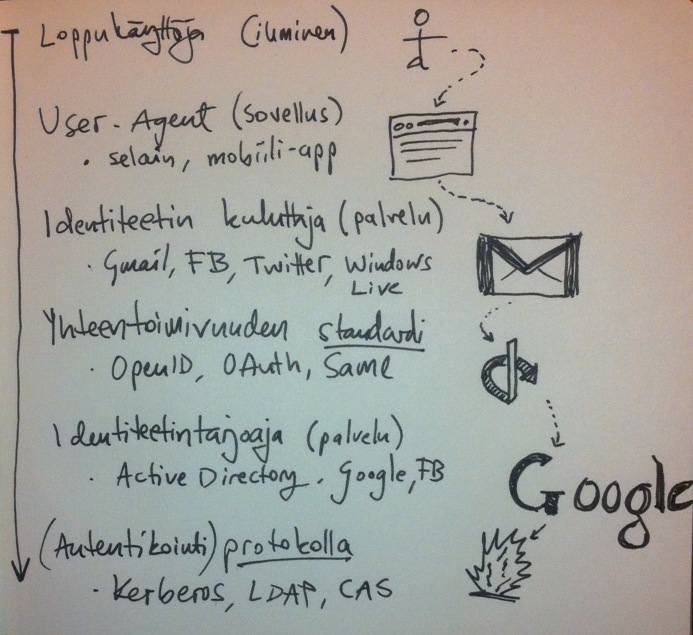 Loppukäyttäjä (ihminen)
User-Agent (sovellus)
• selain, mobiili-app
Identiteetin kuluttaja (palvelu)
• Gmail, FB, Twitter, Windows
Live
Yhteentoimivuuden standardi
• OpenID, OAuth, Same
Identiteetintarjoaja (palvelu)
• Active Directory, Google, FB
Google
(Autentikointi) protokolla
• Kerberos, LDAP, CAS